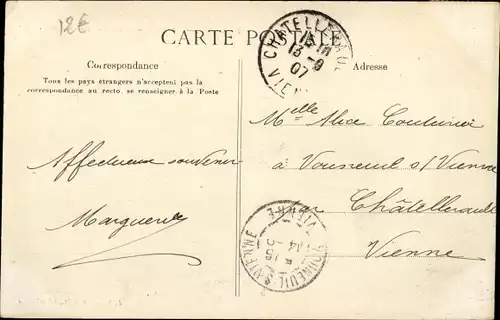 12€
CARTE POSTALE
CHATELLERAULT
13-9
07
VIENNE
Correspondance
Adresse
Tous les pays étrangers n'acceptent pas la
correspondance au recto, se renseigner à la Poste
Affectueux souvenir
Marguerite
Melle Alice Couturier
à Vouneuil s/Vienne
par Châtellerault
Vienne
VOUNEUIL S. VIENNE
VIENNE
14